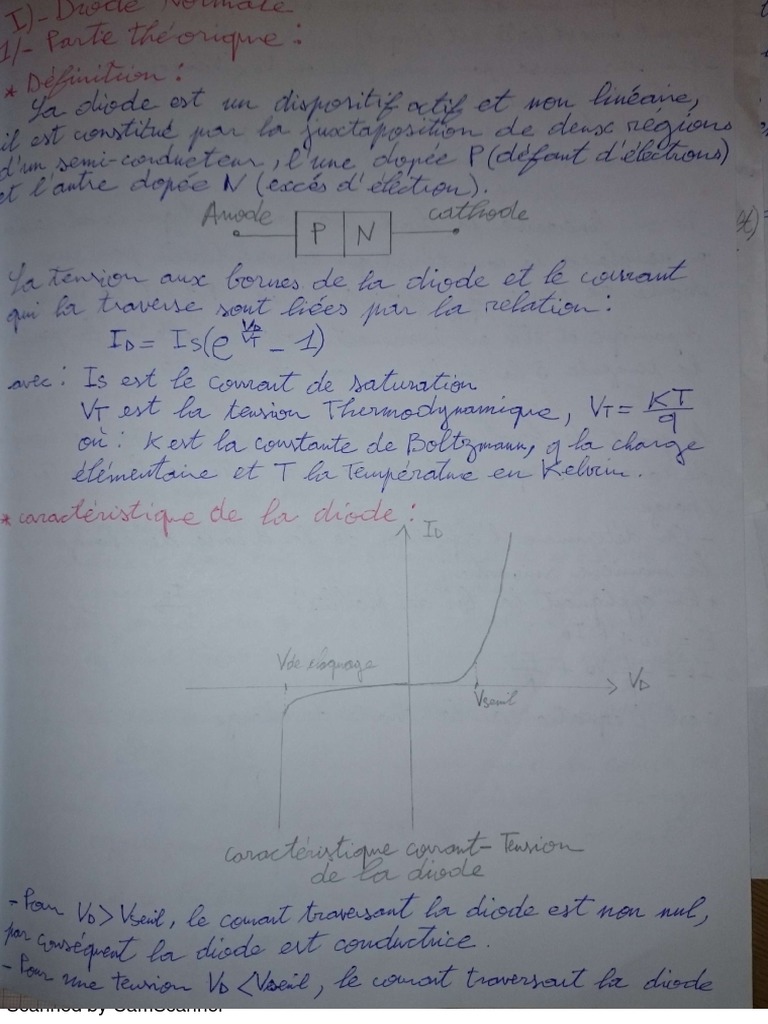 I)- Diode Normale
1/- Partie théorique :
* Définition :
La diode est un dispositif actif et non linéaire,
il est constitué par la juxtaposition de deux régions
d'un semi-conducteur, l'une dopée P (défaut d'électrons)
et l'autre dopée N (excés d'électron).
Anode P N cathode
La tension aux bornes de la diode et le courant
qui la traverse sont liées par la relation :
ID = IS(e^(VD/VT) - 1)
avec : Is est le courant de saturation
VT est la tension Thermodynamique, VT = KT/q
où : K est la constante de Boltzmann, q la charge
élémentaire et T la Température en Kelvin.
* caractéristique de la diode :
ID
V de claquage
VD
Vseuil
caractéristique courant-Tension
de la diode
- Pour VD > Vseuil, le courant traversant la diode est non nul,
par conséquent la diode est conductrice.
- Pour une tension VD < Vseuil, le courant traversant la diode
Scanned by CamScanner